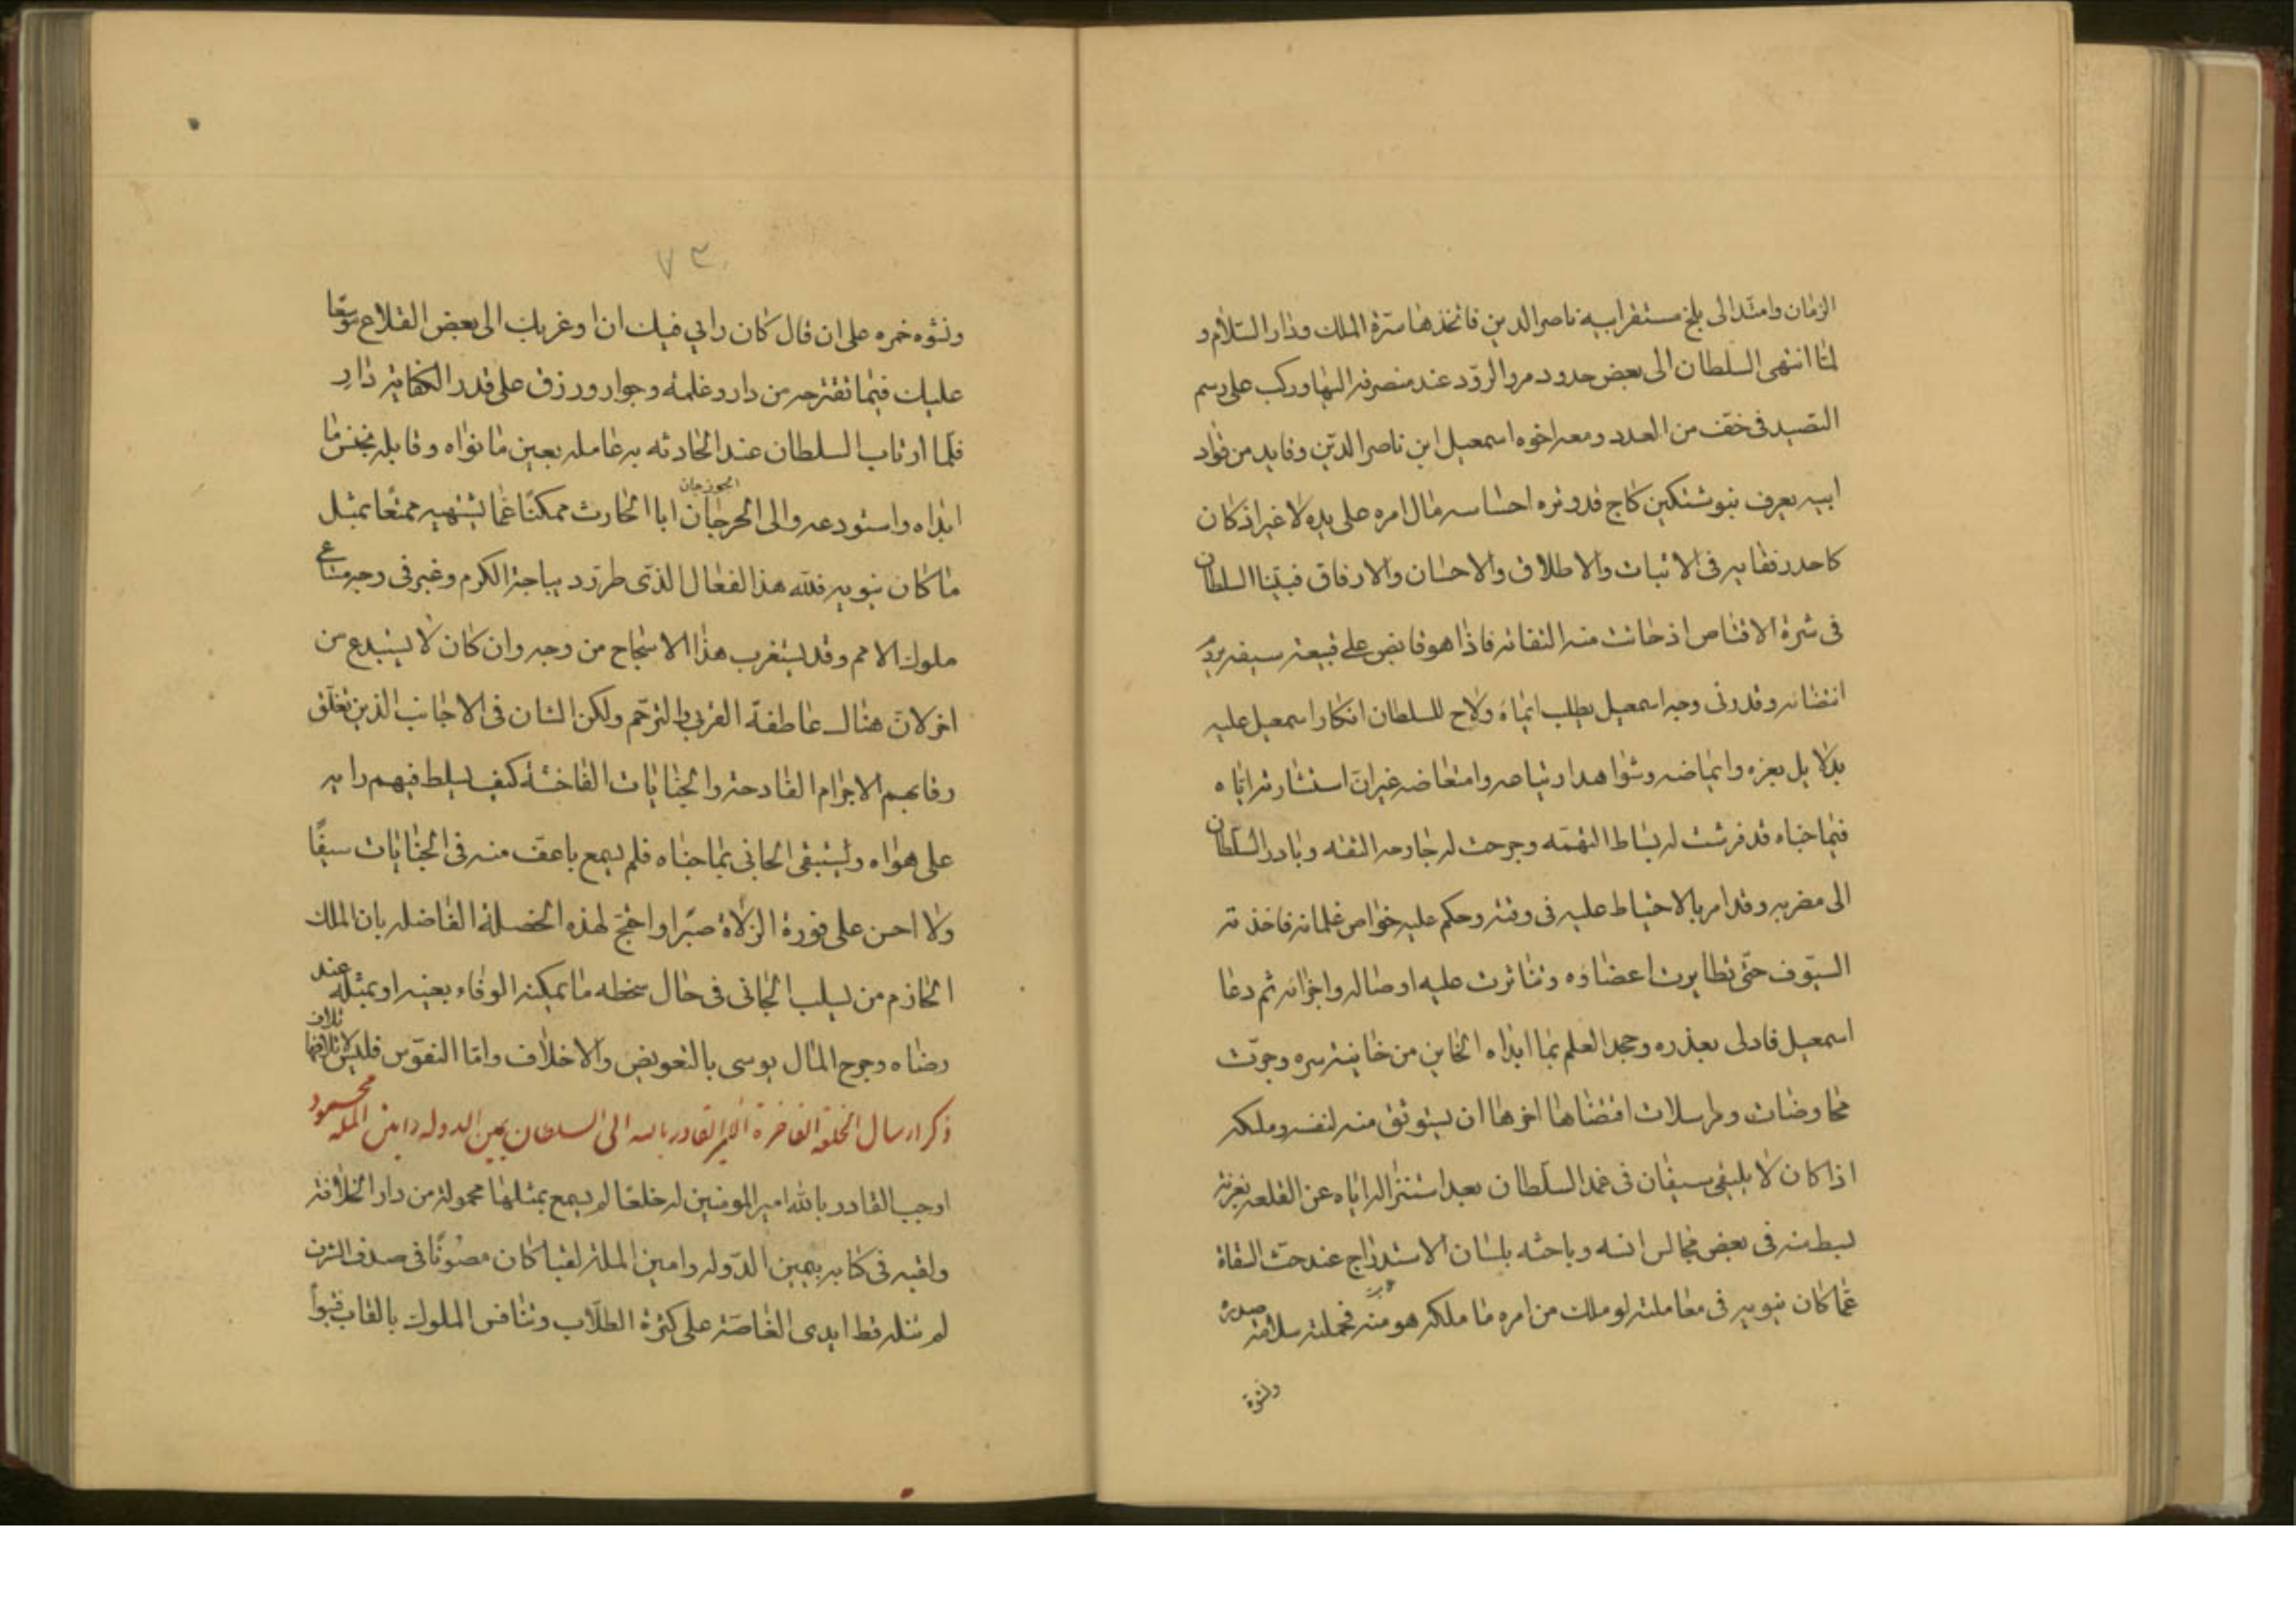 الزمان وامتد الى بلخ مستقر ابيه ناصر الدين فاتخذها سرة الملك ودار السلام و
لما انتهى السلطان الى بعض حدود مرو الرود عند منصرفه اليها وركب على رسم
التصيد فى خف من العدد ومعه اخوه اسمعيل ابن ناصر الدين وقايد من قواد
ابيه يعرف بنوشتكين كاج قد وتره احتباسه مال امره على يده لا غير اذ كان
كاحد رفقايه فى الاثبات والاطلاق والاحسان والارفاق فبينا السلطان
فى شرة الاقتناص اذ حانت منه التفاته فاذا هو قابض على قبيعة سيفه يريد
انتضائه وقد ولى وجه اسمعيل يطلب ايماه ولاح للسلطان انكار اسمعيل عليه
بدلايل بغزه وايماضه وشواهد ارتياعه وامتعاضه غير ان استشارته اياه
فيما خباه قد فرشت له بساط التهمه وجرحت له جارحه الثقه وبادر السلطان
الى مضربه وقد امر بالاحتياط عليه فى وقته وحكم عليه خواص غلمانه فاخذته
السيوف حتى تطايرت اعضاؤه وتناثرت عليه اوصاله واجزائه ثم دعا
اسمعيل فادلى بعذره وجحد العلم بما ابداه الخاين من خاينة سره وجرت
مخاوضات ومراسلات اقتضاها اخرها ان يستوثق منه لنفسه وملكه
اذا كان لا يلتقى سيفان فى غمد السلطان بعد استنزاله اياه عن القلعه بغزنة
لبسط منه فى بعض مجالس انسه وباحثه بلسان الاستدراج عند حث السقاة
عما كان ينويه فى معاملته لو ملك من امره ما ملكه هو منه فحملته سلامة صدره
ونشوة
٧٣
ونشوه خمره على ان قال كان رايي فيك ان اوعز بك الى بعض القلاع موسعا
عليك فيما تقترحه من دار وغلمة وجوار ورزق على قدر الكفاية دار
فلما ارتاب السلطان عند الحادثه به عامله بعين ما نواه وقابله بجنس ما
الجوزجان
ابداه واستودعه والى الحرجان ابا الحارث ممكنا عما يشتهيه ممتعا بمثل
ما كان ينويه فلله هذا الفعال الذى طرز ديباجة الكرم وغبر فى وجه مساعى
ملوك الامم وقد يستغرب هذا الاسجاح من وجه وان كان لا يستبدع من
اخر لان هناك عاطفة القربى والترحم ولكن الشان فى الاجانب الذين تعلق
رقابهم الاجرام الفادحة والجنايات الفاحشة كيف يسلط فيهم رايه
على هواه ويستبقى الجانى بما جناه فلم يسمع باعف منه فى الجنايات سيفا
ولا احسن على فورة الزلاة صبرا واحتج لهذه الخصلة الفاضله بان الملك
الحازم من يسلب الجانى فى حال سخطه ما يمكنه الوفاء بعينه او بمثله عند
رضاه وجرح المال يوسى بالتعويض والاخلاف واما النفوس فليس لاتلافها تلاف
ذكر ارسال الخلعة الفاخرة القادر بالله الى السلطان يمين الدوله وامين الملة محمود
اوجب القادر بالله امير المومنين له خلعا لم يسمع بمثلها محمولة من دار الخلافة
ولقبه فى كتابه بيمين الدوله وامين الملة لقبا كان مصونا فى صدف الشرف
لم تنله قط ايدى الغاصة على كثرة الطلاب وتنافس الملوك بالقاب فتبوأ